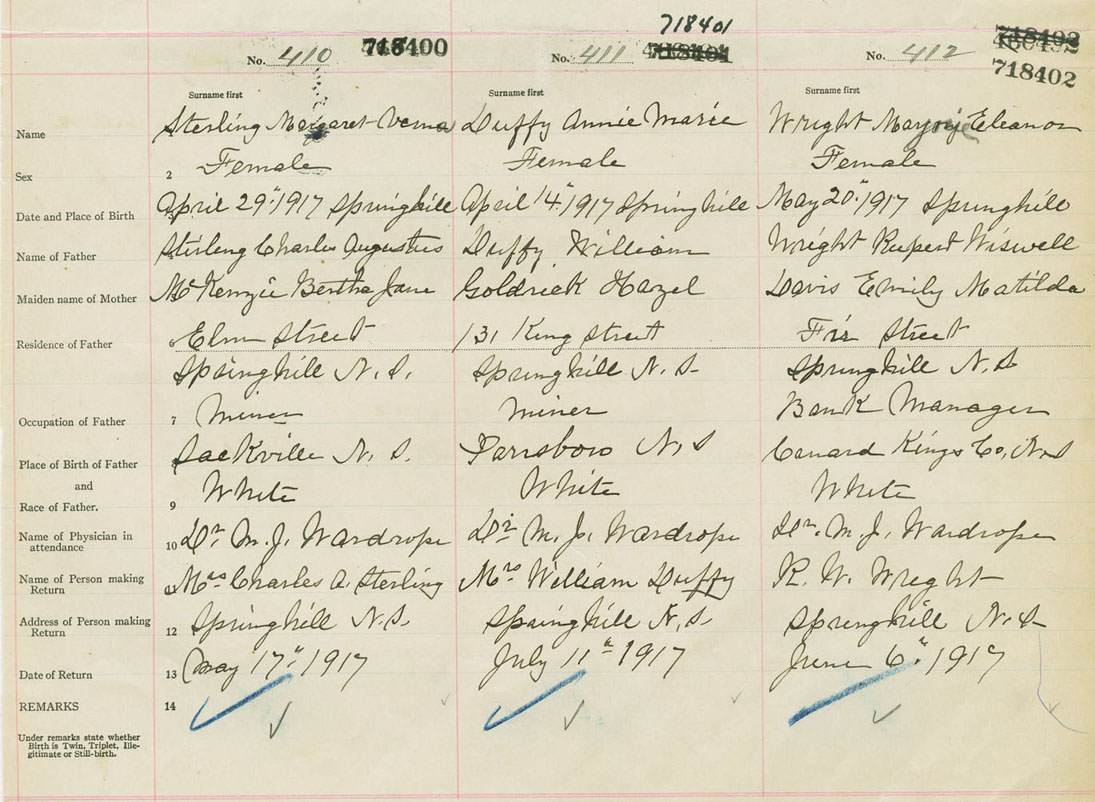 718401
No. 410 718400 No. 411 No. 412
718402
Surname first Surname first Surname first
Name Sterling Margaret Verna Duffy Annie Marie Wright Marjory Eleanor
Sex 2 Female Female Female
Date and Place of Birth April 29" 1917 Springhill April 14" 1917 Springhill May 20" 1917 Springhill
Name of Father Sterling Charles Augustus Duffy William Wright Rupert Wiswell
Maiden name of Mother McKenzie Bertha Jane Goldrick Hazel Davis Emily Matilda
Residence of Father 6 Elm Street 131 King Street Fir Street
Springhill N.S. Springhill N.S. Springhill N.S
Occupation of Father 7 Miner Miner Bank Manager
Place of Birth of Father 8 Sackville N.S. Parrsboro N.S Canard Kings Co, N.S
and
Race of Father. 9 White White White
Name of Physician in attendance 10 Dr. M. J. Wardrope Dr. M. J. Wardrope Dr. M. J. Wardrope
Name of Person making Return Mrs Charles A. Sterling Mrs William Duffy R. W. Wright
Address of Person making Return 12 Springhill N.S. Springhill N.S Springhill N.S
Date of Return 13 May 17" 1917 July 11" 1917 June 6" 1917
REMARKS 14
Under remarks state whether
Birth is Twin, Triplet, Ille-
gitimate or Still-birth.